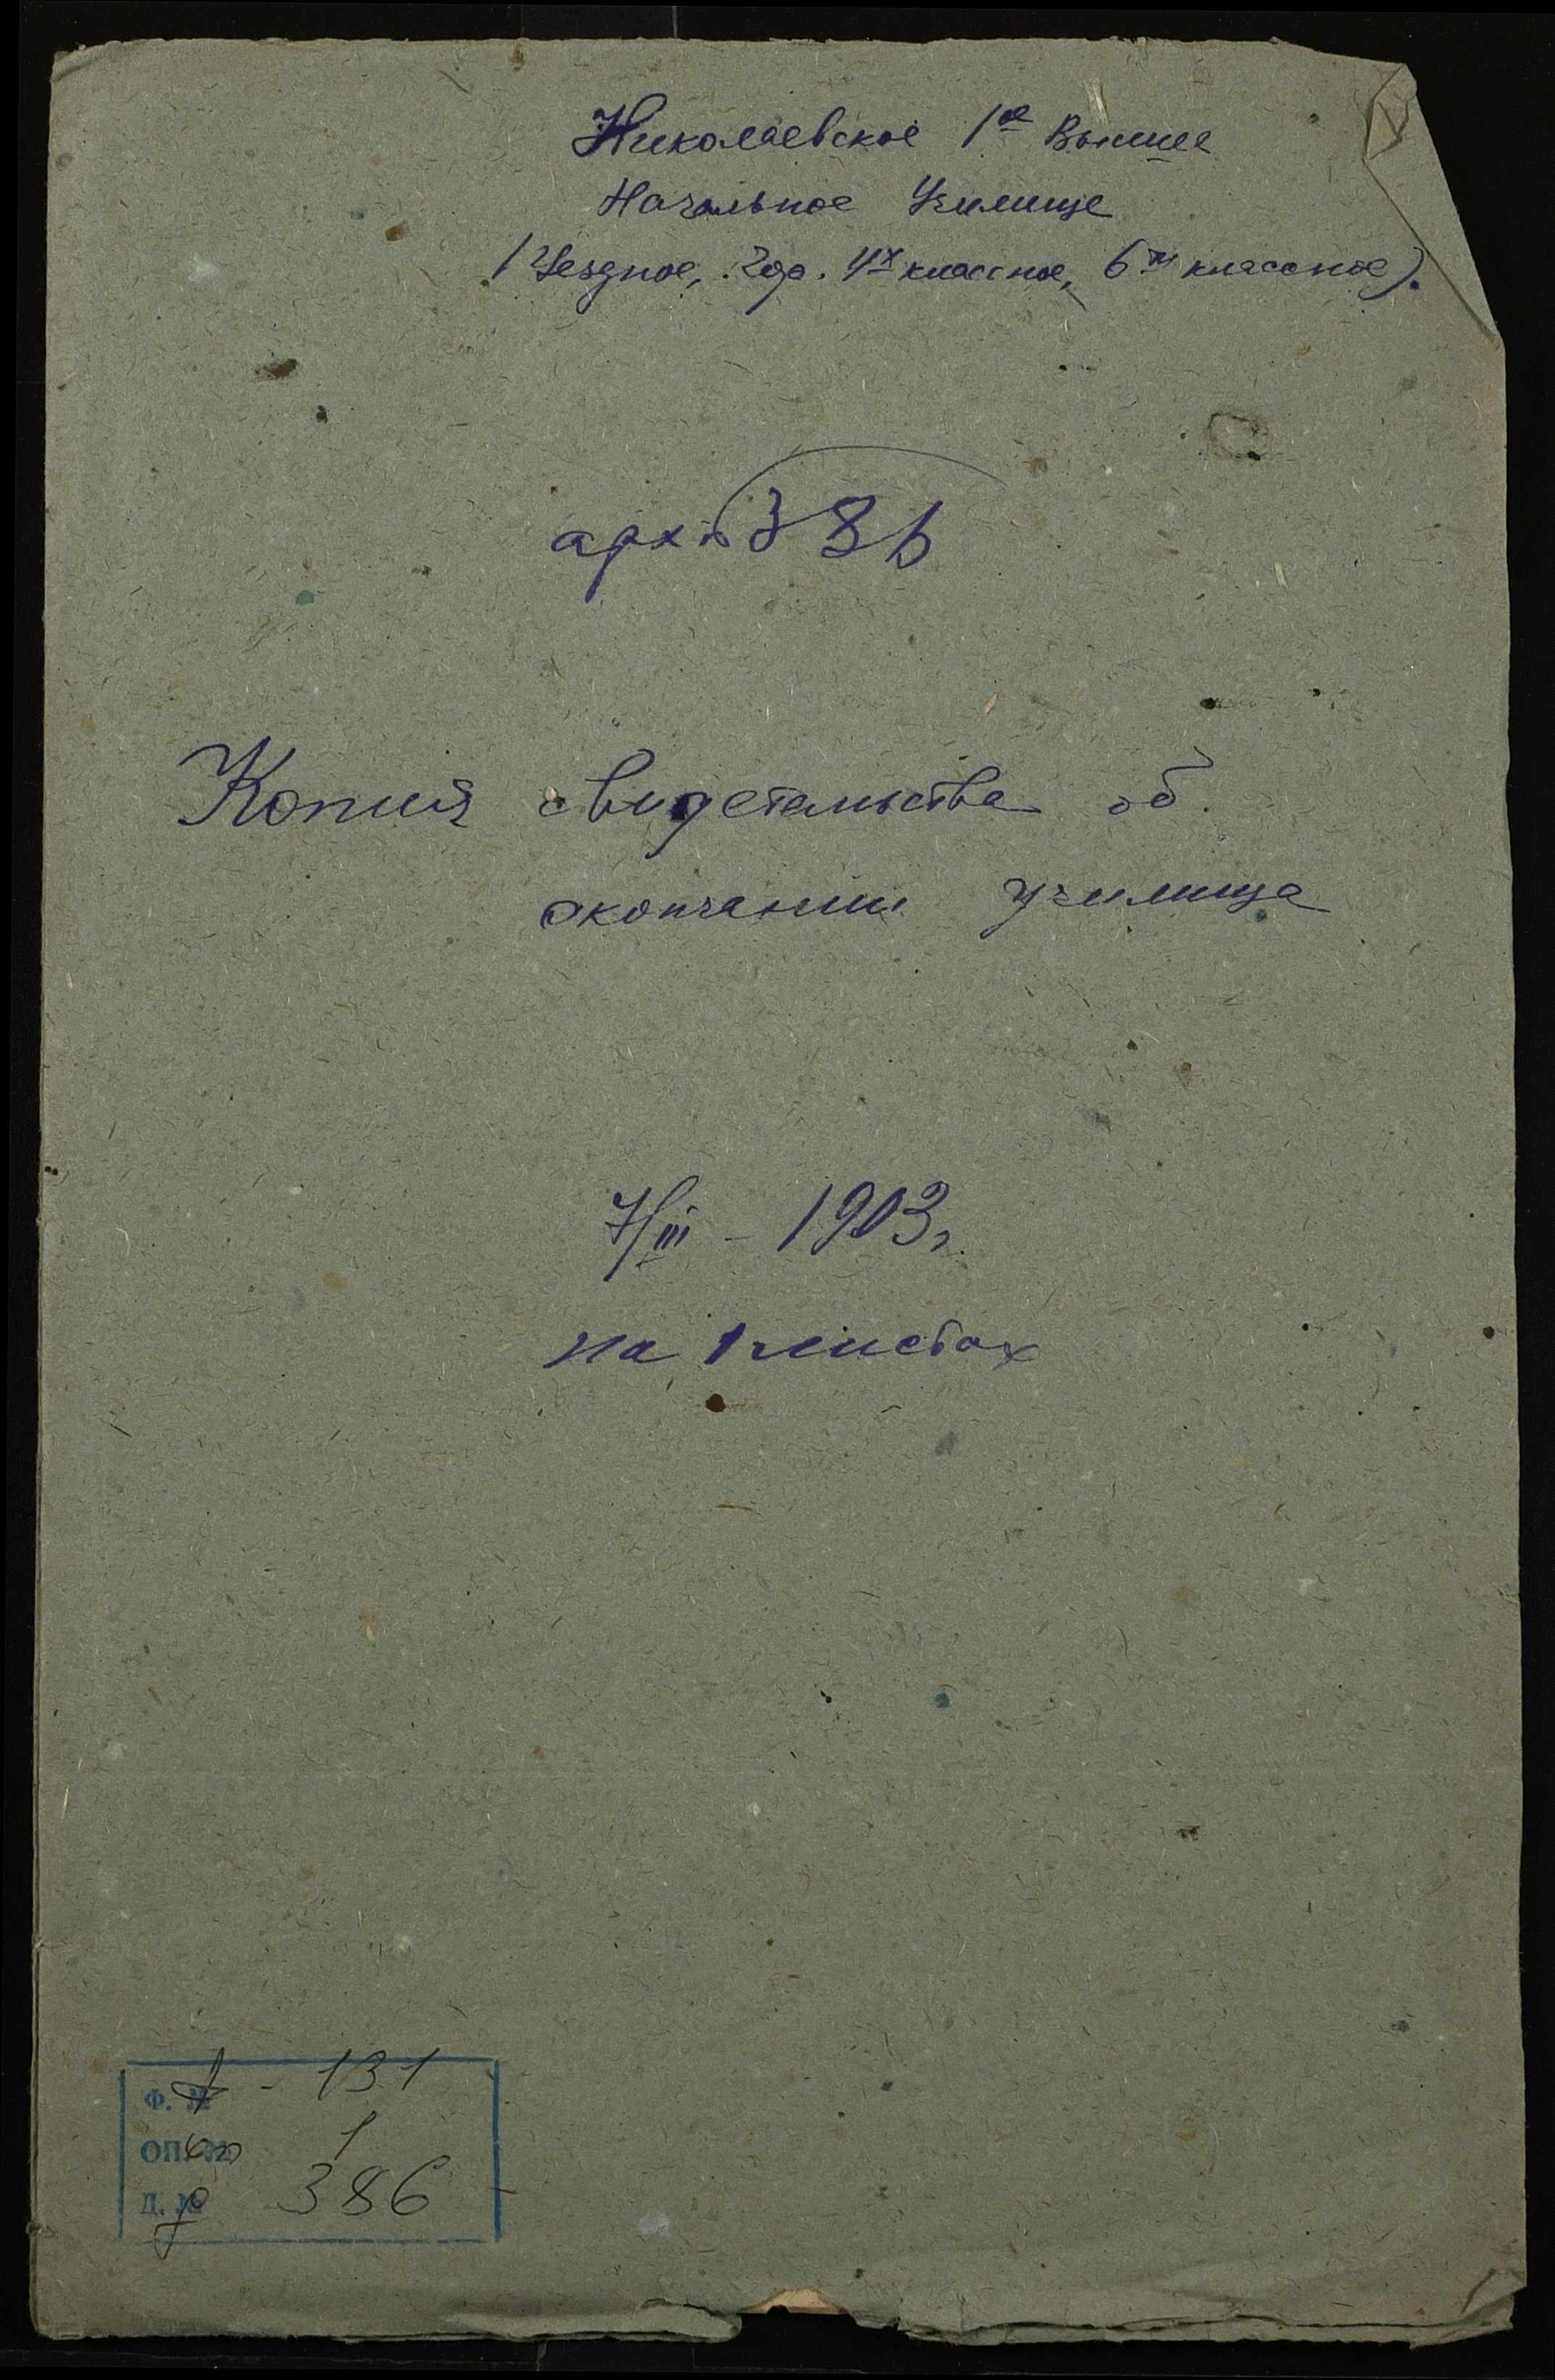 Николаевское 1ое Высшее
Начальное Училище
(Уездное, 4х классное, 6ти классное).
арх 386
Копия свидетельства об
окончании училища
7/III - 1903г
на 1 листах
Ф. № ф - 131
ОП. № оп 1
Д. № д 386